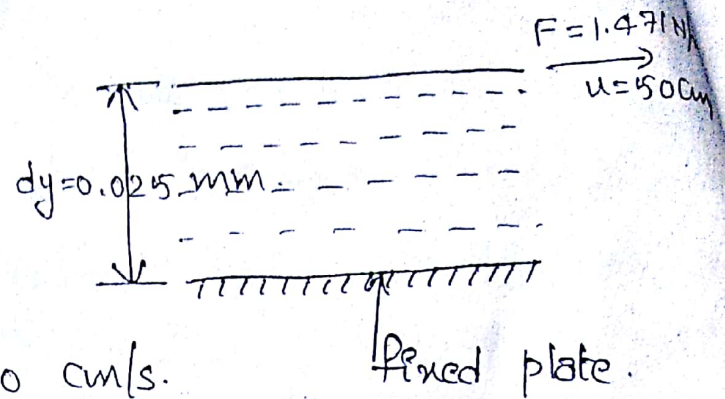 F = 1.471N/
u = 50 cm
dy=0.025 mm.
o cm/s.
fixed plate.